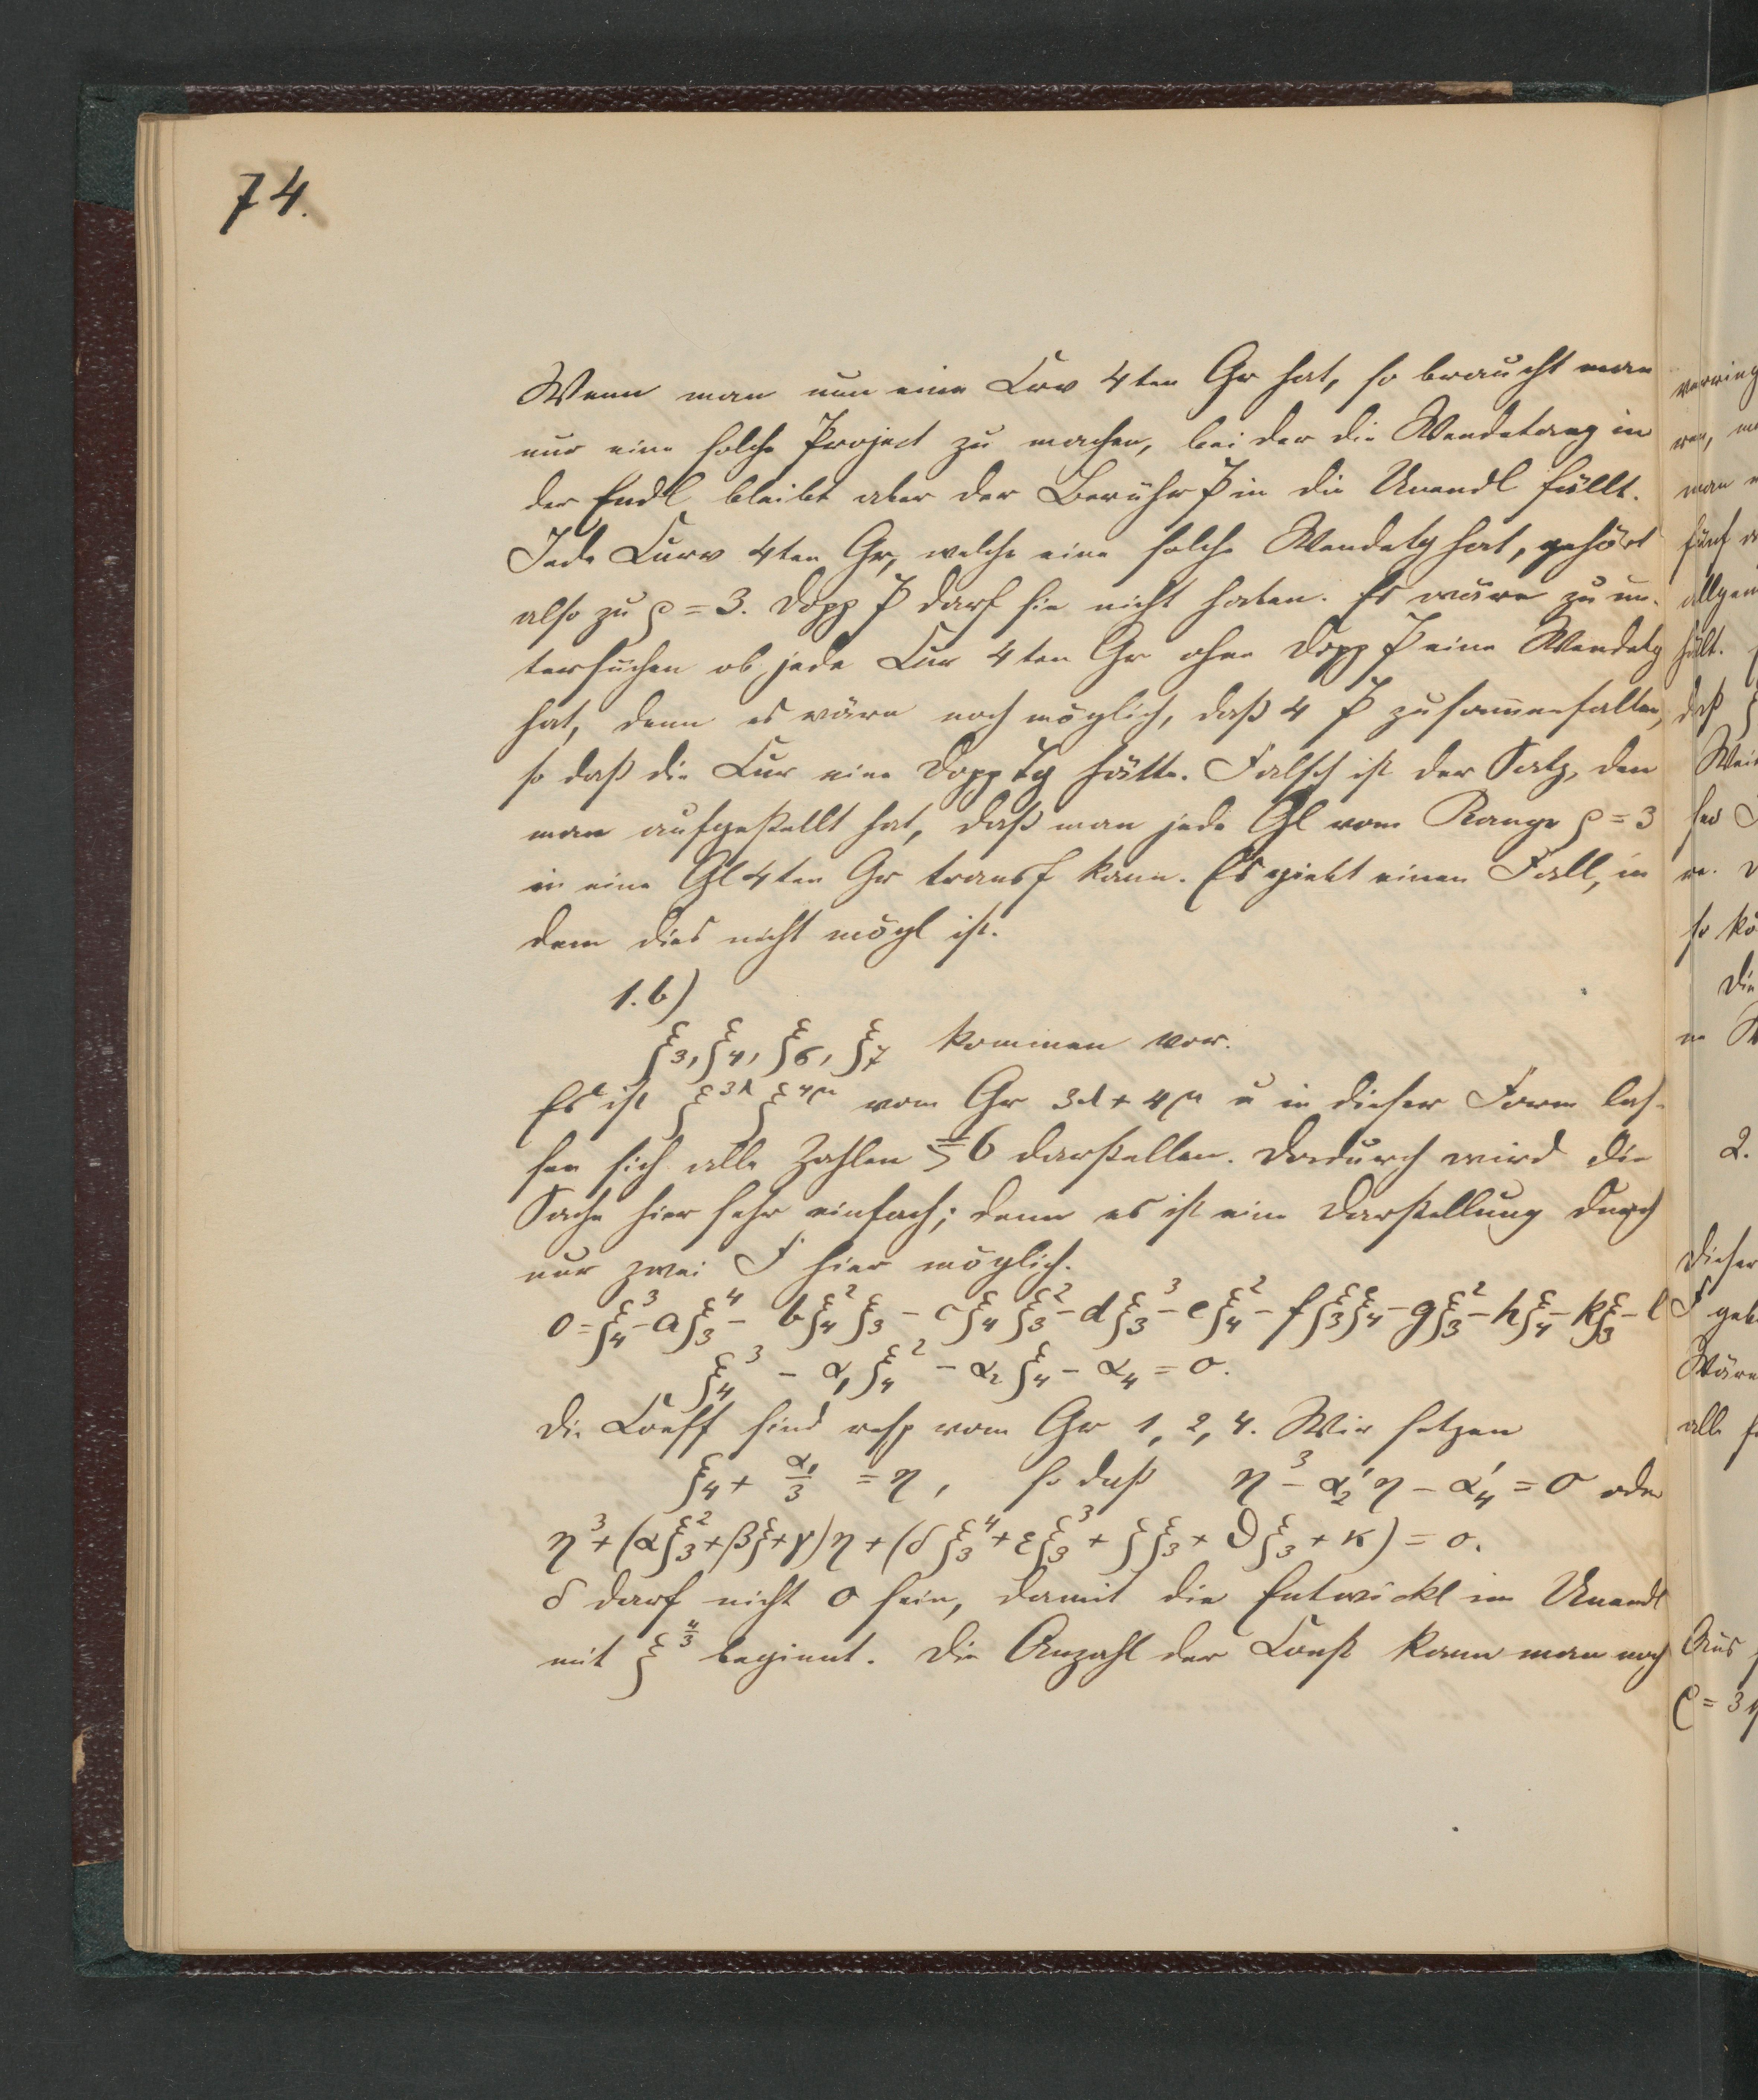 74.
Wenn man nun eine Curv 4ten Gr hat, so braucht man
nur eine solche Project zu machen, bei der die Wendetang in
der Endl bleibt aber der Berühr P in die Unendl fällt.
Jede Curv 4ten Gr, welche eine solche Wendetg hat, gehört
also zu ρ = 3. Dopp P darf sie nicht haben. Es wäre zu un-
tersuchen ob jede Cur 4ten Gr ohne Dopp P eine Wendetg
hat, denn es wäre noch möglich, daß 4 P zusam̄enfallen,
so daß die Cur eine Dopp Tg hätte. Falsch ist der Satz, den
man aufgestellt hat, daß man jede Gl vom Range ρ = 3
in eine Gl 4ten Gr transf kann. Es giebt einen Fall, in
dem dies nicht mögl ist.
1. b)
ξ₃, ξ₄, ξ₆, ξ₇ kommen vor.
Es ist ξ^{3λ} ξ^{4μ} vom Gr 3λ + 4μ u in dieser Form las-
sen sich alle Zahlen ≧ 6 darstellen. Dadurch wird die
Sache hier sehr einfach; denn es ist eine Darstellung durch
nur zwei F hier möglich.
0 = ξ₄³ - aξ₃⁴ - bξ₄²ξ₃ - cξ₄ξ₃² - dξ₃³ - eξ₄² - fξ₃ξ₄ - gξ₃² - hξ₄ - kξ₃ - l
ξ₄³ - α₁ξ₄² - α₂ξ₄ - α₄ = 0.
Die Coeff sind resp vom Gr 1, 2, 4. Wir setzen
ξ₄ + α₁/3 = η, so daß η³ - α₂'η - α₄' = 0 oder
η³ + (αξ₃² + βξ + γ)η + (δξ₃⁴ + εξ₃³ + ζξ₃ + ϑξ₃ + κ) = 0.
δ darf nicht 0 sein, damit die Entwickl im Unendl
mit ξ^{4/3} beginnt. Die Anzahl der Const kann man noch